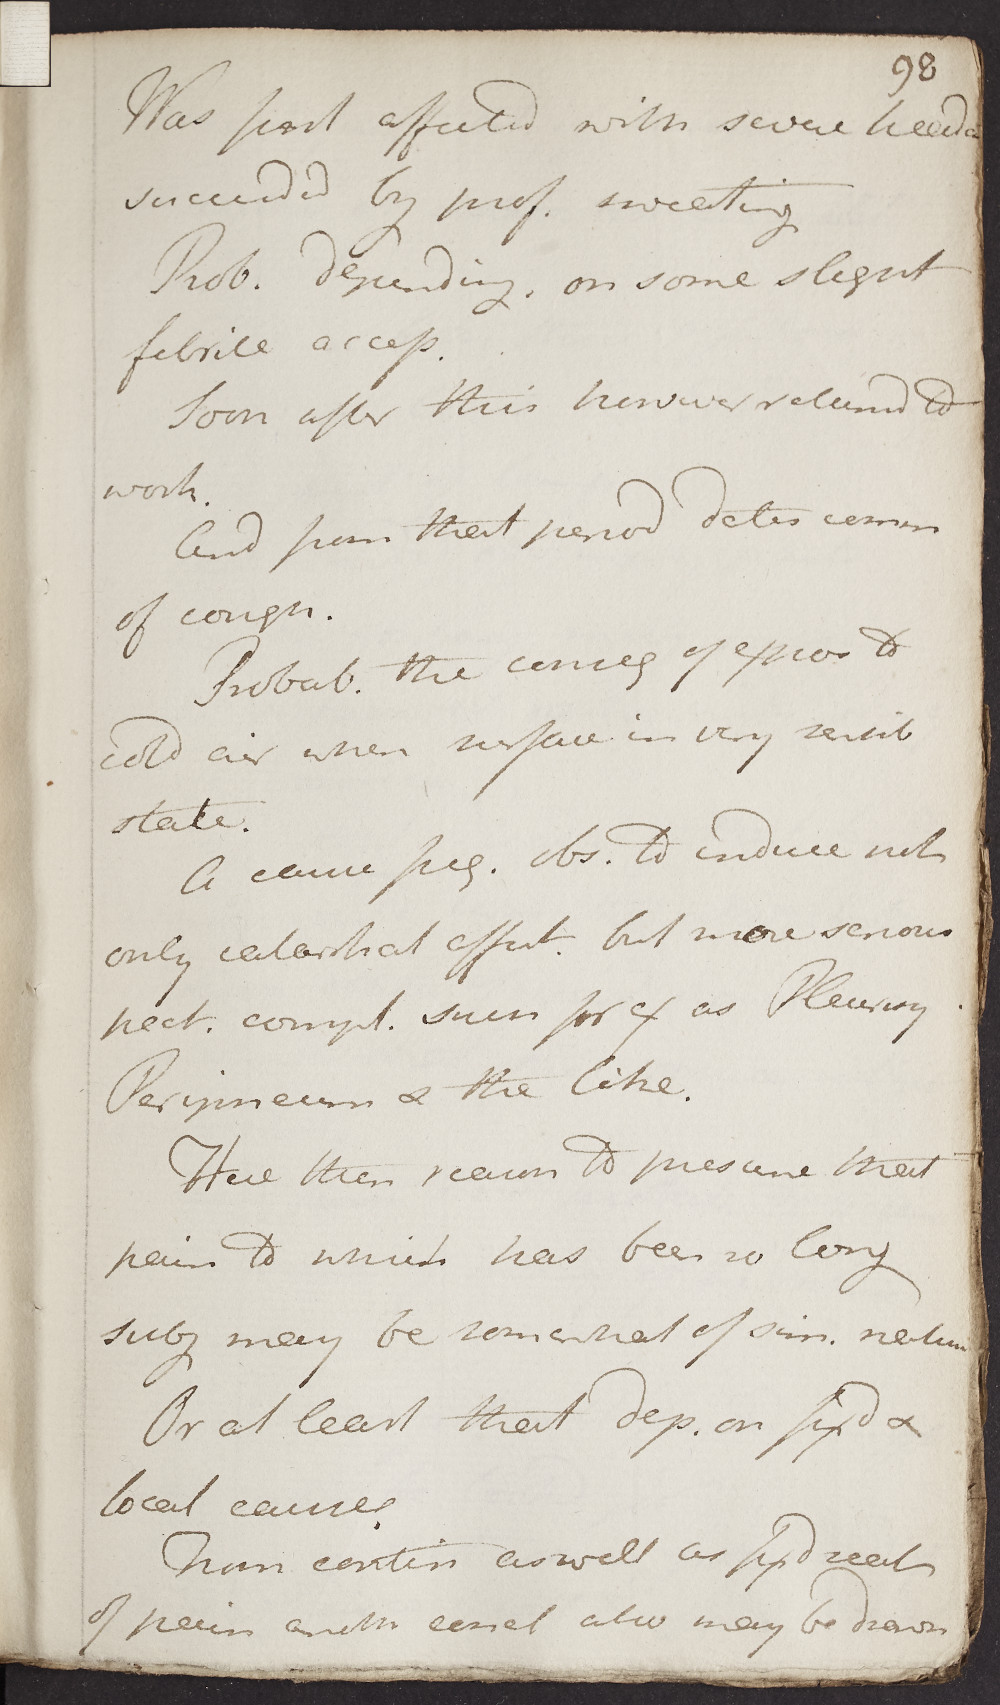 98
Was first affected with severe heada
succeeded by prof. sweating
Prob. depending, on some slight
febrile access.
Soon after this however returnd to
work.
And from that period dates comm
of cough.
Probab. the conseq of expos to
cold air when surface in very sensib
state.
A cause freq. obs. to induce not
only catarrhal affect. but more serious
pect. compl. such for ex as Pleurisy
Peripneum & the like.
Have then reason to presume that
pain to which has been so long
subj may be somewhat of sim. nature
Or at least that dep. on fixd &
local cause
From contin as well as fixd seat
of pain anoth also may be drawn